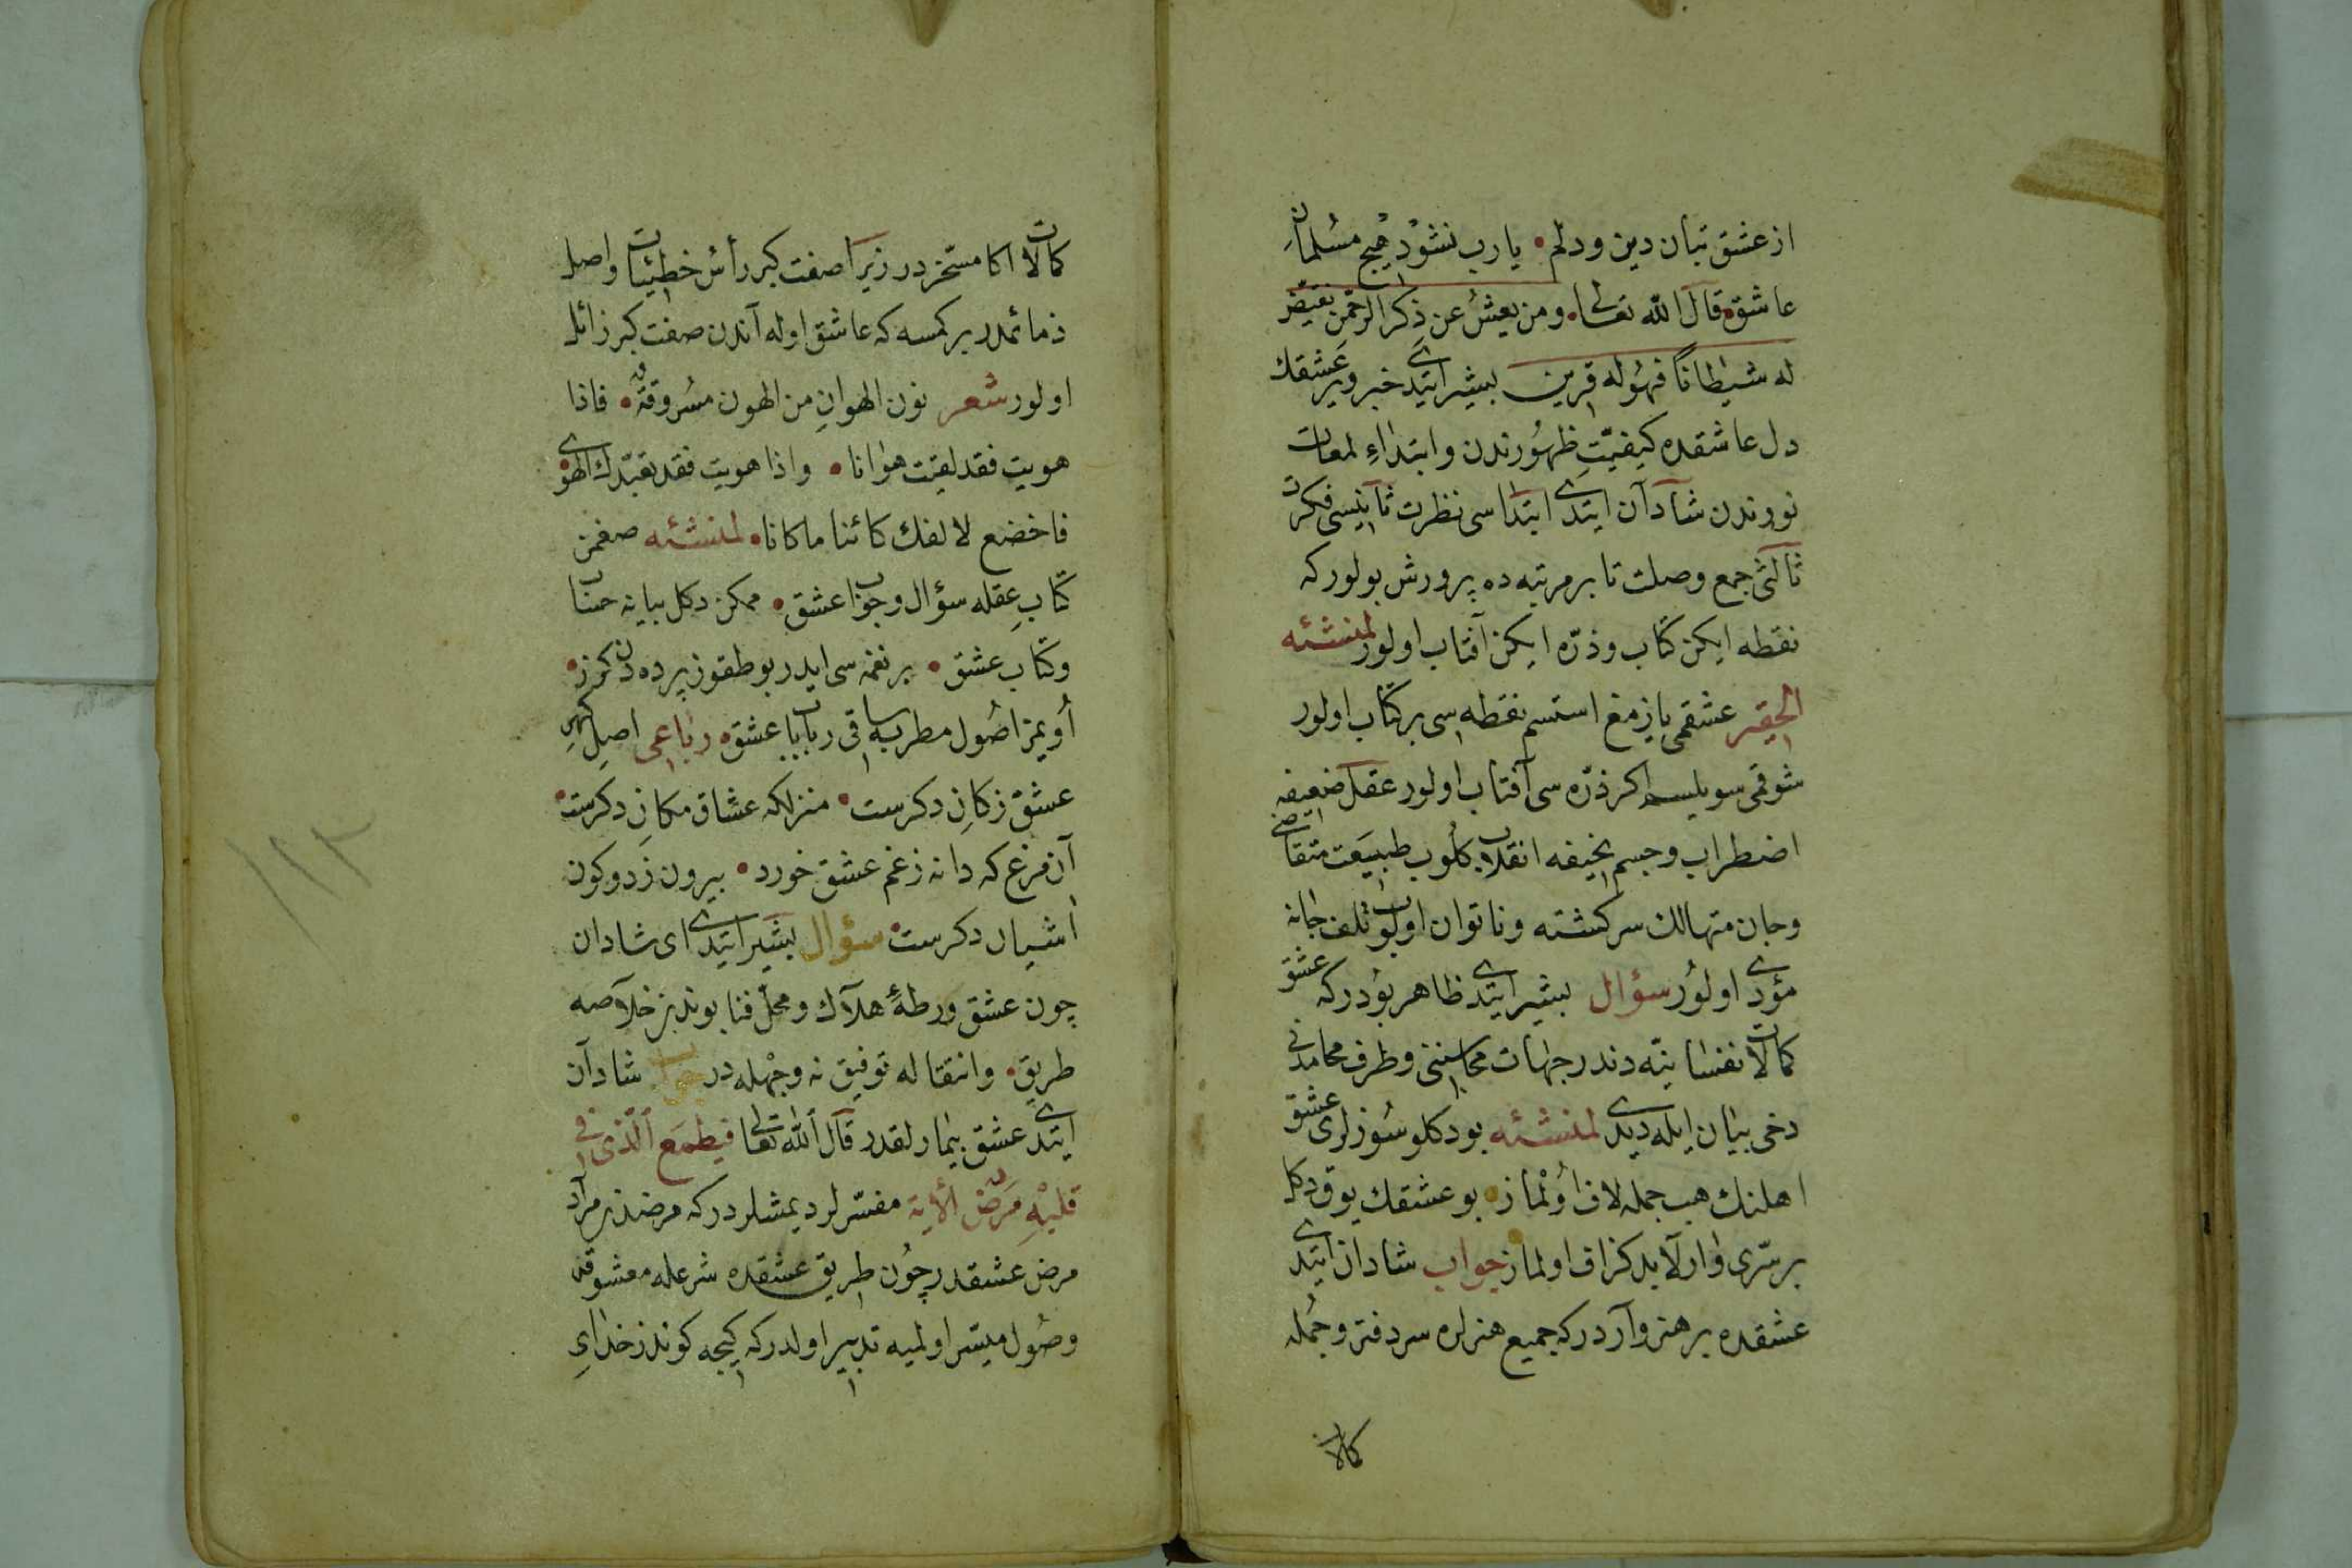 از عشق تبان دین و دلم • یا رب نشود هیچ مسلمان
عاشق • قال الله تعالی • ومن یعش عن ذکر الرحمن نقیض
له شیطانا فهو له قرین بشیر ایتدی خبر ویر عشقك
دل عاشقده کیفیت ظهورندن وابتداء لمعات
نورندن شادان ایتدی ابتداسی نظرت ثانیسی فکرت
ثالثی جمع وصلت تا بر مرتبه ده پرورش بولور که
نقطه ایکن کتاب وذره ایکن آفتاب اولور لمنشئه
الحقیر عشقمی یازمغ استسم نقطه سی بر کتاب اولور
شوقمی سویلسم اکر ذره سی آفتاب اولور عقل ضعیفه
اضطراب وجسم نحیفه انقلاب کلوب طبیعت متقاضی
وجان متهالك سرکشته وناتوان اولوب تلف جانه
مؤدی اولور سؤال بشیر ایتدی ظاهر بودر که عشق
کمالات نفسانیه دندر جهات محاسننی وطرف محامدنی
دخی بیان ایله دیدی لمنشئه بودکلو سوزلری عشق
اهلنك هب جمله لاف اولماز • بو عشقك یوق دکل
بر سری وار لابد کزاف اولماز جواب شادان ایتدی
عشقده بر هنر واردر که جمیع هنرلره سر دفتر وجمله
کمالات
کمالات اکا مسخردر زیرا صفت کبر رأس خطیئات واصل
ذمائمدر بر کمسه که عاشق اوله آندن صفت کبر زائل
اولور شعر نون الهوان من الهون مسروقة • فاذا
هویت فقد لقیت هوانا • واذا هویت فقد تعبدك الهوی
فاخضع لالفك کائنا ما کانا • لمنشئه صغمز
کتاب عقله سؤال وجواب عشق • ممکن دکل بیانه حساب
وکتاب عشق • بر نغمه سی ایدر بو طقوز پرده دن کذر •
اویمز اصول مطربه ساقی رباب عشق • رباعی اصل کهر
عشق ز کان دکرست • منزلکه عشاق مکان دکرست •
آن مرغ که دانه ز غم عشق خورد • بیرون ز دو کون
آشیان دکرست • سؤال بشیر ایتدی ای شادان
چون عشق ورطهٔ هلاك ومحل فنا بوندن خلاصه
طریق • وانتقاله توفیق نه وجهله در جواب شادان
ایتدی عشق بیمارلقدر قال الله تعالی فیطمع الذی فی
قلبه مرض الآیة مفسرلر دیمشلردر که مرضدن مراد
مرض عشقدر چون طریق عشقده شرعله معشوقه
وصول میسر اولمیه تدبیر اولدر که کیجه کوندز خدای
۱۲۳